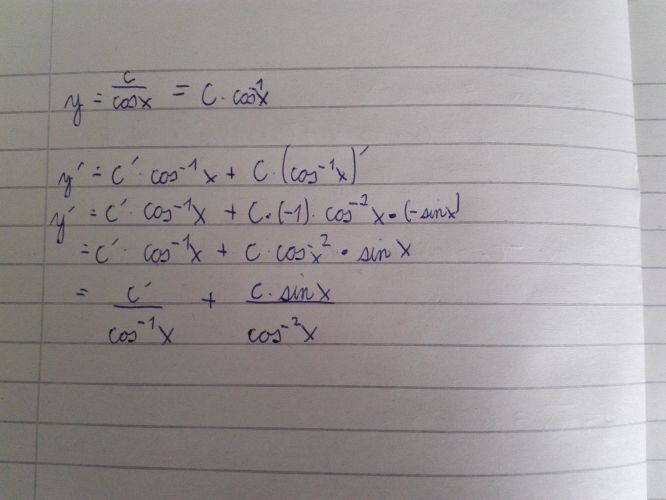 y = c/cosx = C · cos⁻¹x
y' = C' · cos⁻¹x + C · (cos⁻¹x)'
y' = C' · cos⁻¹x + C · (-1) · cos⁻²x · (-sinx)
= C' · cos⁻¹x + C · cos⁻²x · sinx
= C'/cos⁻¹x + C · sinx/cos⁻²x